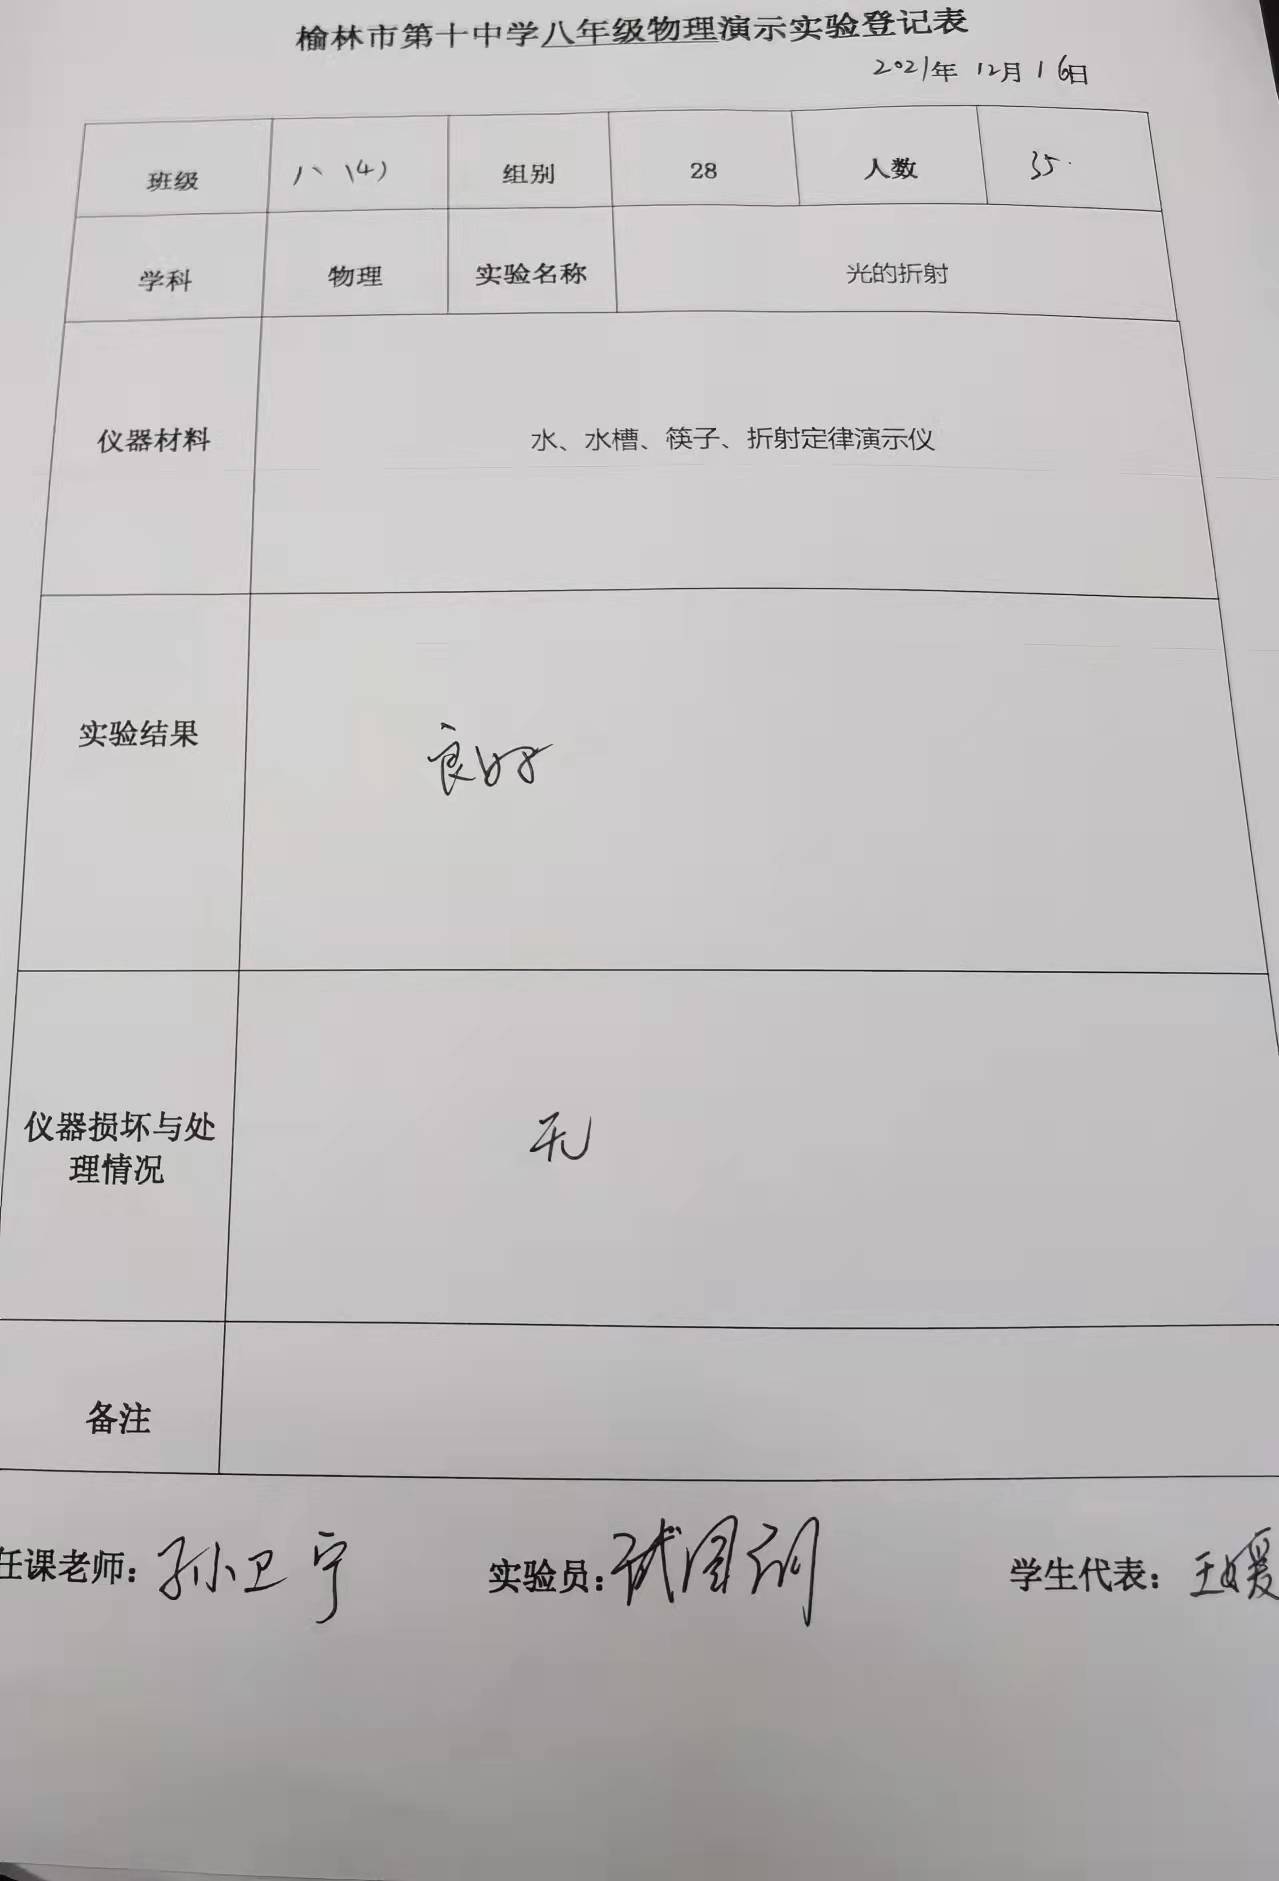 榆林市第十中学八年级物理演示实验登记表
2021年 12月 16日
班级 八(4) 组别 28 人数 35
学科 物理 实验名称 光的折射
仪器材料 水、水槽、筷子、折射定律演示仪
实验结果 良好
仪器损坏与处
理情况
无
备注
任课老师: 孙卫宁 实验员: 学生代表: 王媛